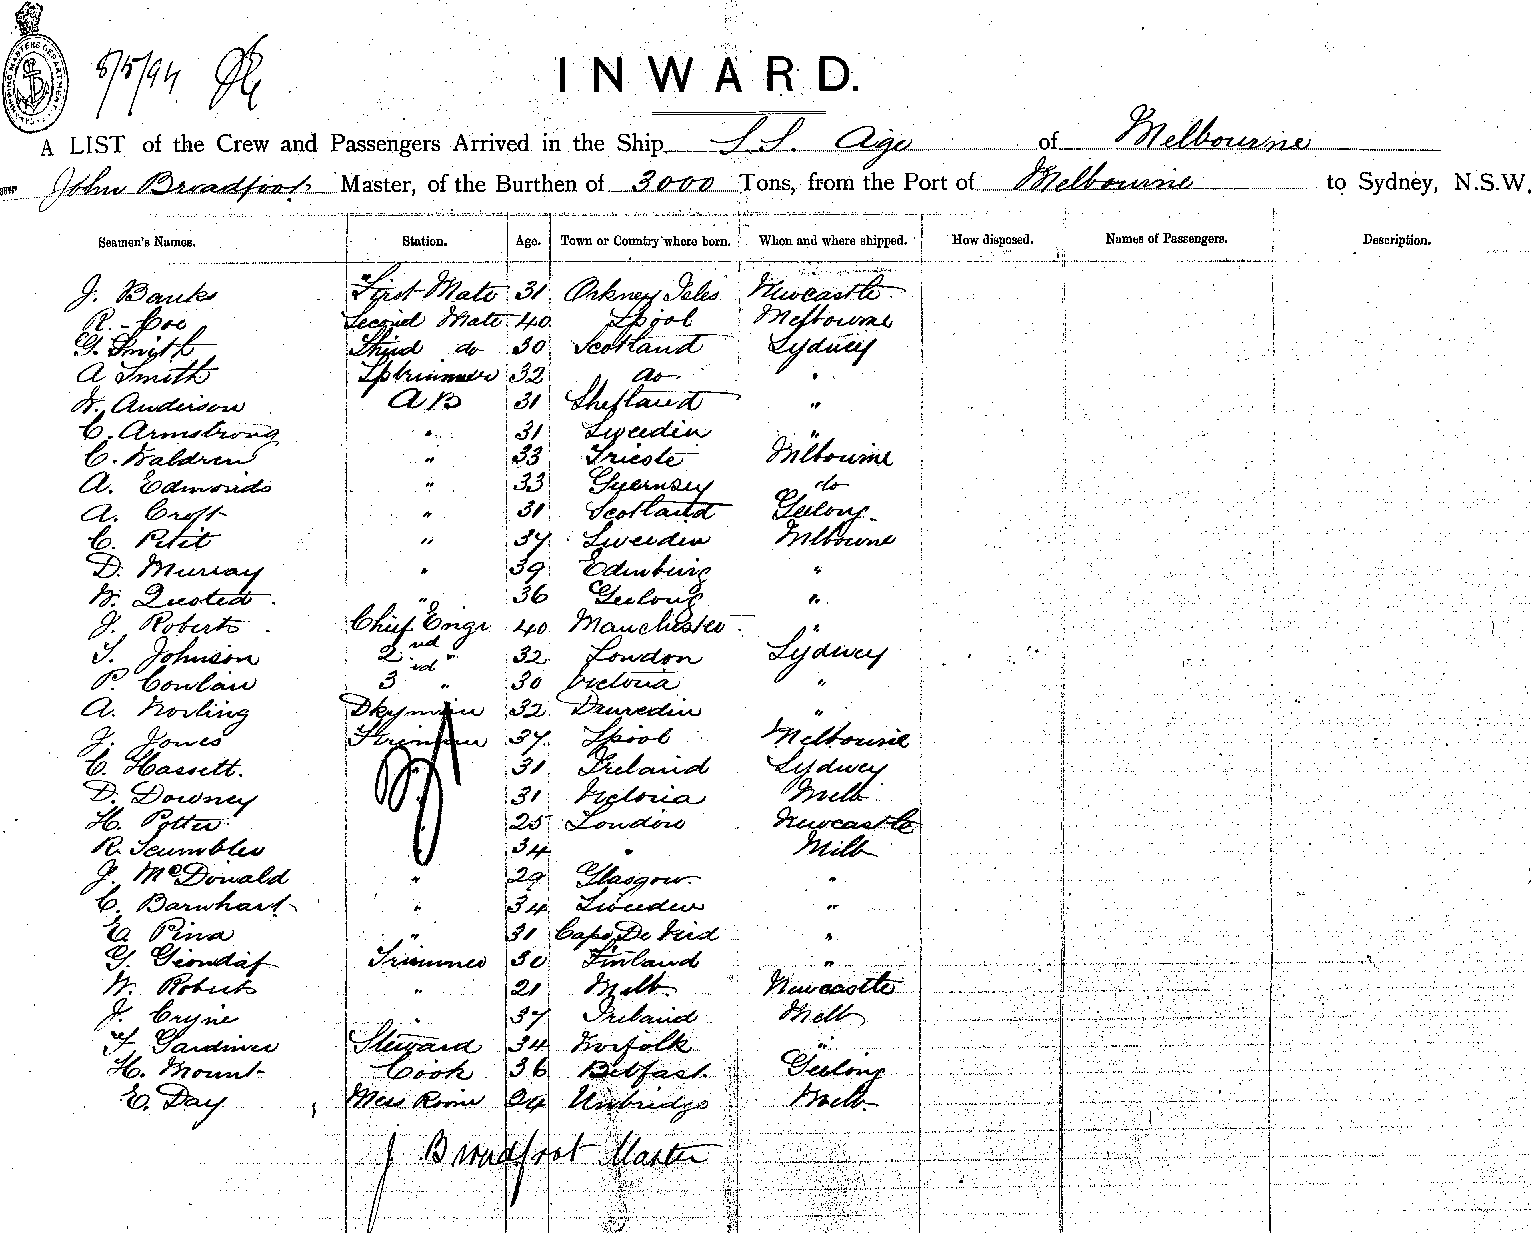 8/5/94
INWARD.
A LIST of the Crew and Passengers Arrived in the Ship S.S. Age of Melbourne
John Broadfoot Master, of the Burthen of 3000 Tons, from the Port of Melbourne to Sydney, N.S.W.
Seamen's Names. Station. Age. Town or Country where born. When and where shipped. How disposed. Names of Passengers. Description.
J. Banks First Mate 31 Orkney Isles Newcastle
R. Coe Second Mate 40 Lpool Melbourne
G. Smith Third do 30 Scotland Sydney
A Smith 32 do "
W. Anderson A B 31 Shetland "
C. Armstrong " 31 Sweedin "
C. Waldren " 33 Trieste Melbourne
A. Edmonds " 33 Guernsey do
A. Croft " 31 Scotland Geelong
C. Petit " 37 Sweeden Melbourne
D. Murray " 39 Edinburg "
W. Quested " 36 Geelong "
J. Roberts Chief Engr 40 Manchester "
T. Johnson 2nd " 32 London Sydney
P. Conlan 3rd " 30 Victoria "
A. Norling Dkyman 32 Dunedin "
J. Jones 37 Lpool Melbourne
C. Hassett. " 31 Ireland Sydney
D. Downey " 31 Victoria Melb
H. Potter " 25 London Newcastle
R. Scumbler " 34 " Melb
J. McDonald " 29 Glasgow "
C. Barnhart " 34 Sweeden "
E. Pina " 31 Cape De Verd "
G. Trimmer 30 Finland "
W. Roberts " 21 Melb. Newcastle
J. Cryne " 37 Ireland Melb
F. Gardiner Steward 34 Norfolk "
H. Mount Cook 36 Belfast Geelong
E. Day Mess Room 24 Uxbridge Melb.
J Broadfoot Master